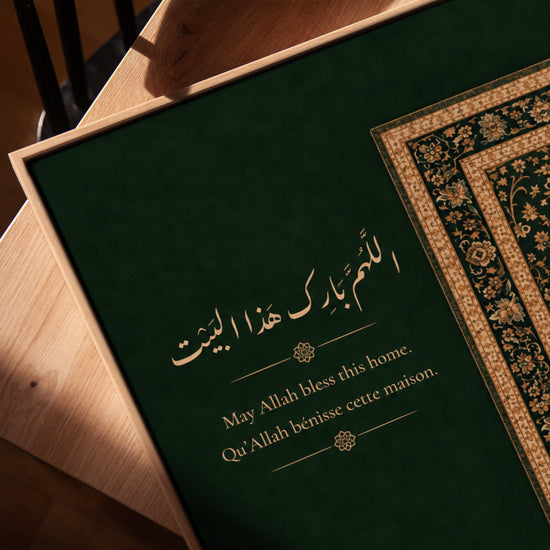 اللَّهُمَّ بَارِك هَذا البَيْت
May Allah bless this home.
Qu'Allah bénisse cette maison.